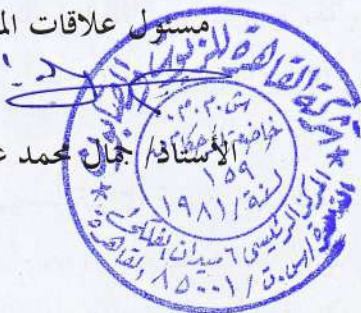 مسئول علاقات الم
الأستاذ/ جمال محمد ع
شركة القاهرة للزيوت
ش.م.م.
خاضعة لأحكام
١٥٩
لسنة / ١٩٨١
المركز الرئيسى ٦ ميدان الفلكى
س.ت / ٨٥٠٠١ القاهرة